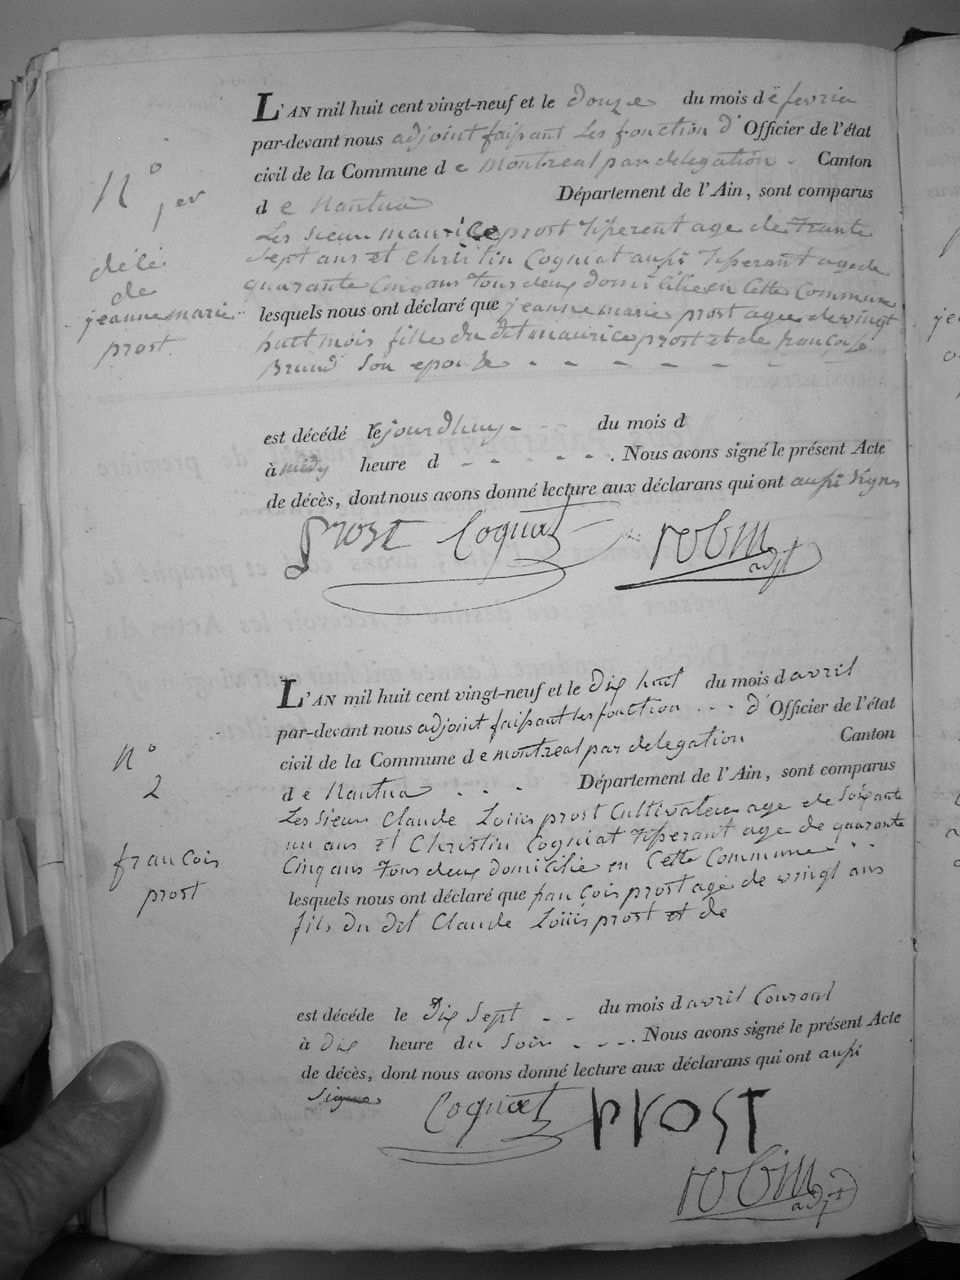 L'AN mil huit cent vingt-neuf et le douze du mois de fevrier
par-devant nous adjoint faisant les fonction d'Officier de l'état
civil de la Commune de montreal par delegation Canton
de Nantua Département de l'Ain, sont comparus
Les sieur maurice prost tisserent age de trante
sept ans et Christin Cogniat aussi tisserant age de
quarante Cinq ans tous deux domicilié en Cette Commune
lesquels nous ont déclaré que jeanne marie prost agee de vingt
huit mois fille du dit maurice prost et de françoise
Brund son epouse - - - - - - -
est décédé le jourdhuy - du mois d
à midy heure d - - - - - . Nous avons signé le présent Acte
de décès, dont nous avons donné lecture aux déclarans qui ont aussi signes
prost Cogniat robin
adjt
N° 1er
déces
de
jeanne marie
prost
L'AN mil huit cent vingt-neuf et le dix huit du mois d avril
par-devant nous adjoint faissant les fonction - - - d'Officier de l'état
civil de la Commune de montreal par delegation Canton
de Nantua - - - Département de l'Ain, sont comparus
Les sieur Claude Louis prost Cultivateur age de soixante
un ans et Christin Cogniat tisserant age de quarante
Cinq ans tous deux domicilié en Cette Commune
lesquels nous ont déclaré que francois prost age de vingt ans
fils du dit Claude Louis prost et de
est décédé le dix sept - - du mois d avril Courant
à dix heure du soir - - - - . Nous avons signé le présent Acte
de décès, dont nous avons donné lecture aux déclarans qui ont aussi
signes
Cogniat prost
robin
adjt
N°
2
francois
prost